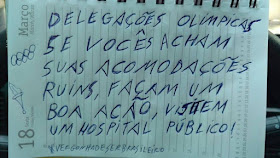 Março
DELEGAÇÕES OLÍMPICAS
SE VOCÊS ACHAM
SUAS ACOMODAÇÕES
RUINS, FAÇAM UM
BOA AÇÃO, VISITEM
UM HOSPITAL PÚBLICO!
18
#VERGONHADESERBRASILEIRO